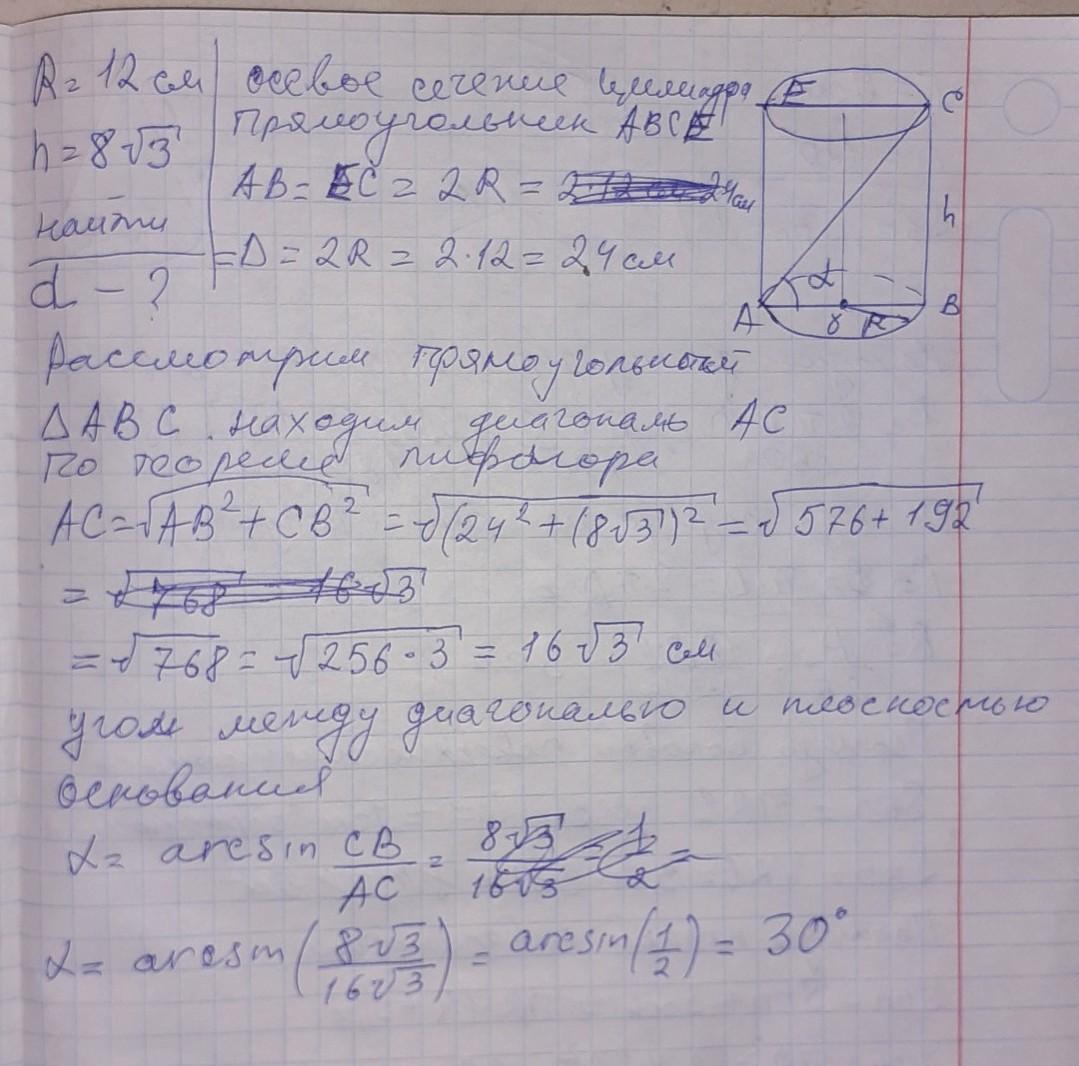 R = 12 см
h = 8√3
найти
d - ?
осевое сечение цилиндра
прямоугольник ABCE
AB = EC = 2R = 24 см
= D = 2R = 2·12 = 24 см
E
C
h
α
A
B
R
Рассмотрим прямоугольный
ΔABC. находим диагональ AC
По теореме пифагора
AC = √AB² + CB² = √(24² + (8√3)² = √576 + 192
= √768 = 16√3
= √768 = √256·3 = 16√3 см
угол между диагональю и плоскостью
основания
α = arcsin CB/AC = 8√3/16√3 = 1/2 =
α = arcsin(8√3/16√3) = arcsin(1/2) = 30°